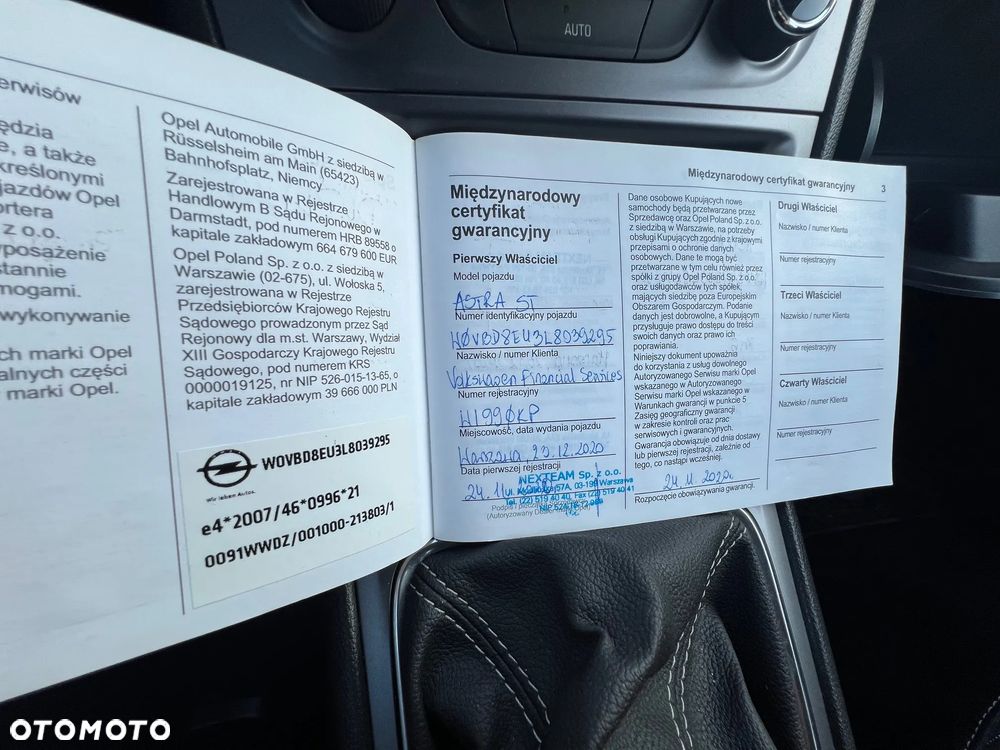 AUTO
erwisów
ędzia
e, a także
kreślonymi
jazdów Opel
ortera
z o.o.
yposażenie
stannie
mogami.
wykonywanie
ch marki Opel
alnych części
marki Opel.
Opel Automobile GmbH z siedzibą w
Rüsselsheim am Main (65423)
Bahnhofsplatz, Niemcy
Zarejestrowana w Rejestrze
Handlowym B Sądu Rejonowego w
Darmstadt, pod numerem HRB 89558 o
kapitale zakładowym 664 679 600 EUR
Opel Poland Sp. z o.o. z siedzibą w
Warszawie (02-675), ul. Wołoska 5,
zarejestrowana w Rejestrze
Przedsiębiorców Krajowego Rejestru
Sądowego prowadzonym przez Sąd
Rejonowy dla m.st. Warszawy, Wydział
XIII Gospodarczy Krajowego Rejestru
Sądowego, pod numerem KRS
0000019125, nr NIP 526-015-13-65, o
kapitale zakładowym 39 666 000 PLN
W0VBD8EU3L8039295
Wir leben Autos.
e4*2007/46*0996*21
0091WWDZ/001000-213803/1
Międzynarodowy certyfikat gwarancyjny 3
Międzynarodowy
certyfikat
gwarancyjny
Pierwszy Właściciel
Model pojazdu
ASTRA ST
Numer identyfikacyjny pojazdu
W0VBD8EU3L8039295
Nazwisko / numer Klienta
Volkswagen Financial Services
Numer rejestracyjny
WI990KP
Miejscowość, data wydania pojazdu
Warszawa, 23.12.2020
Data pierwszej rejestracji
24.11.
NEXTEAM Sp. z o.o.
57A, 03-199 Warszawa
Tel. (22) 519 40 40, Fax (22) 519 40 41
NIP 524
Podpis i pieczęć
(Autoryzowany
Dane osobowe Kupujących nowe
samochody będą przetwarzane przez
Sprzedawcę oraz Opel Poland Sp. z o.o.
z siedzibą w Warszawie, na potrzeby
obsługi Kupujących zgodnie z krajowymi
przepisami o ochronie danych
osobowych. Dane te mogą być
przetwarzane w tym celu również przez
spółki z grupy Opel Poland Sp. z o.o.
oraz usługodawców tych spółek,
mających siedzibę poza Europejskim
Obszarem Gospodarczym. Podanie
danych jest dobrowolne, a Kupującym
przysługuje prawo dostępu do treści
swoich danych oraz prawo ich
poprawiania.
Niniejszy dokument upoważnia
do korzystania z usług dowolnego
Autoryzowanego Serwisu marki Opel
wskazanego w Autoryzowanego
Serwisu marki Opel wskazanego w
Warunkach gwarancji w punkcie 5
Zasięg geograficzny gwarancji
w zakresie kontroli oraz prac
serwisowych i gwarancyjnych.
Gwarancja obowiązuje od dnia dostawy
lub pierwszej rejestracji, zależnie od
tego, co nastąpi wcześniej.
24.11.2020r.
Rozpoczęcie obowiązywania gwarancji.
Drugi Właściciel
Nazwisko / numer Klienta
Numer rejestracyjny
Trzeci Właściciel
Nazwisko / numer Klienta
Numer rejestracyjny
Czwarty Właściciel
Nazwisko / numer Klienta
Numer rejestracyjny
OTOMOTO